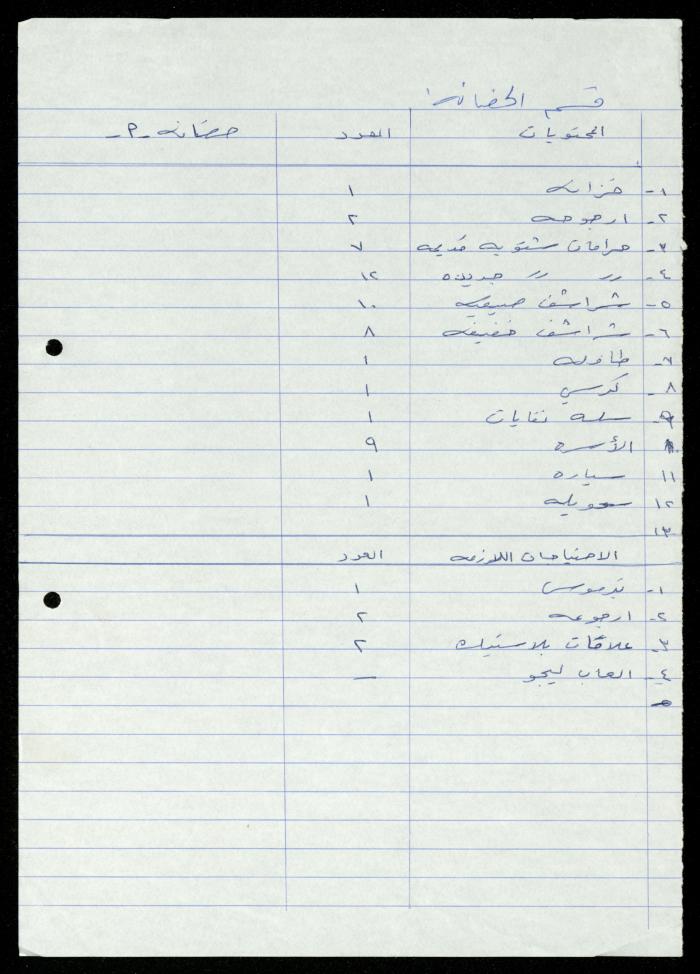 قسم الحضانة
المحتويات العدد حضانه -م-
١- خزانه ١
٢- ارجوحه ٢
٣- حرامات شتويه قديمه ٧
٤- // // جديده ١٢
٥- شراشف صيفيه ١٠
٦- شراشف خفيفه ٨
٧- طاوله ١
٨- كرسي ١
٩- سله نفايات ١
الأسره ٩
١١ سياره ١
١٢ ١
١٣
الاحتياجات اللازمه العدد
١- ترموس ١
٢- ارجوحه ٢
٣- علاقات بلاستيك ٢
٤- العاب ليجو —